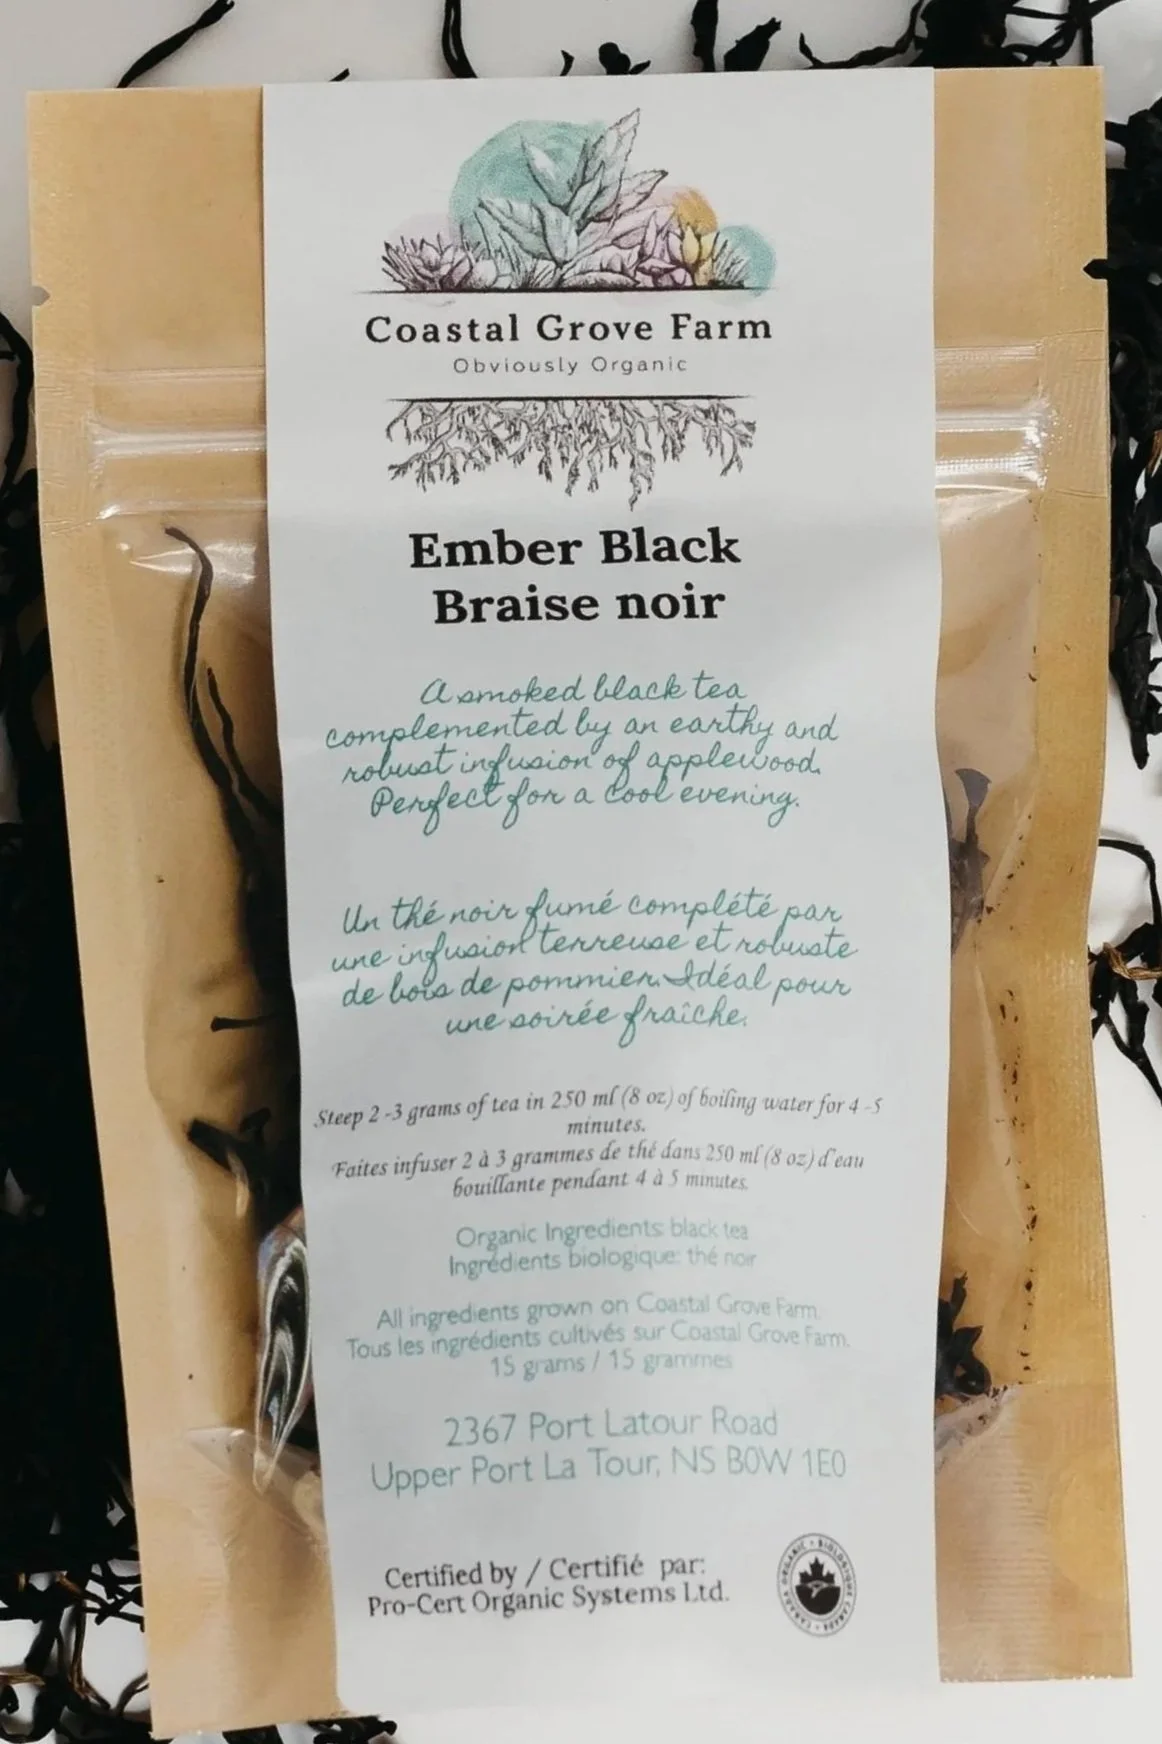 Coastal Grove Farm
Obviously Organic
Ember Black
Braise noir
A smoked black tea
complemented by an earthy and
robust infusion of applewood.
Perfect for a cool evening.
Un thé noir fumé complété par
une infusion terreuse et robuste
de bois de pommier. Idéal pour
une soirée fraîche.
Steep 2 -3 grams of tea in 250 ml (8 oz) of boiling water for 4 -5
minutes.
Faites infuser 2 à 3 grammes de thé dans 250 ml (8 oz) d'eau
bouillante pendant 4 à 5 minutes.
Organic Ingredients: black tea
Ingrédients biologique: thé noir
All ingredients grown on Coastal Grove Farm.
Tous les ingrédients cultivés sur Coastal Grove Farm.
15 grams / 15 grammes
2367 Port Latour Road
Upper Port La Tour, NS B0W 1E0
Certified by / Certifié par:
Pro-Cert Organic Systems Ltd.
ORGANIC • BIOLOGIQUE
CANADA • CANADA